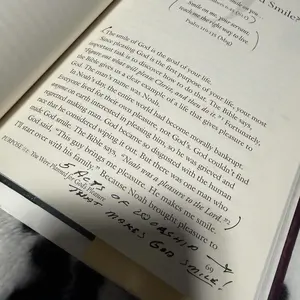 d Smile
Smile on me, your servant;
teach me the right way to live.
Psalm 119:135 (Msg)
The smile of God is the goal of your life.
Since pleasing God is the first purpose of your life, your most
important task is to discover how to do that. The Bible says,
"Figure out what will please Christ, and then do it." Fortunately,
the Bible gives us a clear example of a life that gives pleasure to
God. The man's name was Noah.
In Noah's day, the entire world had become morally bankrupt.
Everyone lived for their own pleasure, not God's. God couldn't find
anyone on earth interested in pleasing him, so he was grieved and
regretted making man. God became so disgusted with the human
race that he considered wiping it out. But there was one man who
made God smile. The Bible says, "Noah was a pleasure to the Lord."
God said, "This guy brings me pleasure. He makes me smile.
I'll start over with his family." Because Noah brought pleasure to
PURPOSE #1: You Were Planned for God's Pleasure
69
5 ACTS OF WORSHIP
THAT MAKES GOD SMILE!